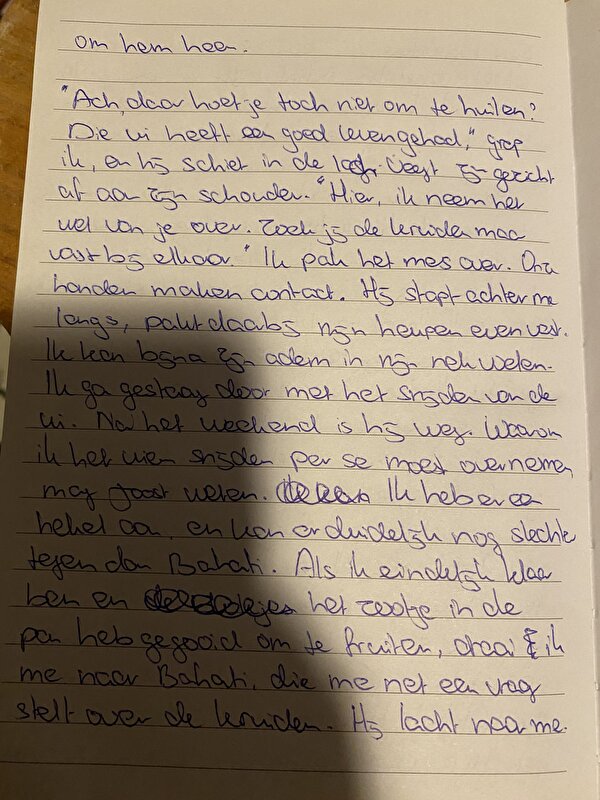 om hem heen.
"Ach, daar hoef je toch niet om te huilen?
Die ui heeft een goed leven gehad," grap
ik, en hij schiet in de lach. Veegt zijn gezicht
af aan zijn schouder. "Hier, ik neem het
wel van je over. Zoek jij de kruiden maar
vast bij elkaar." Ik pak het mes over. Onze
handen maken contact. Hij stapt achter me
langs, pakt daarbij mijn heupen even vast.
Ik kan bijna zijn adem in mijn nek voelen.
Ik ga gestaag door met het snijden van de
ui. Na het weekend is hij weg. Waarom
ik het uien snijden per se moest overnemen,
mag Joost weten. Ik heb er een
hekel aan, en kan er duidelijk nog slechter
tegen dan Bahati. Als ik eindelijk klaar
ben en het zootje in de
pan heb gegooid om te fruiten, draai ik
me naar Bahati, die me net een vraag
stelt over de kruiden. Hij lacht naar me.